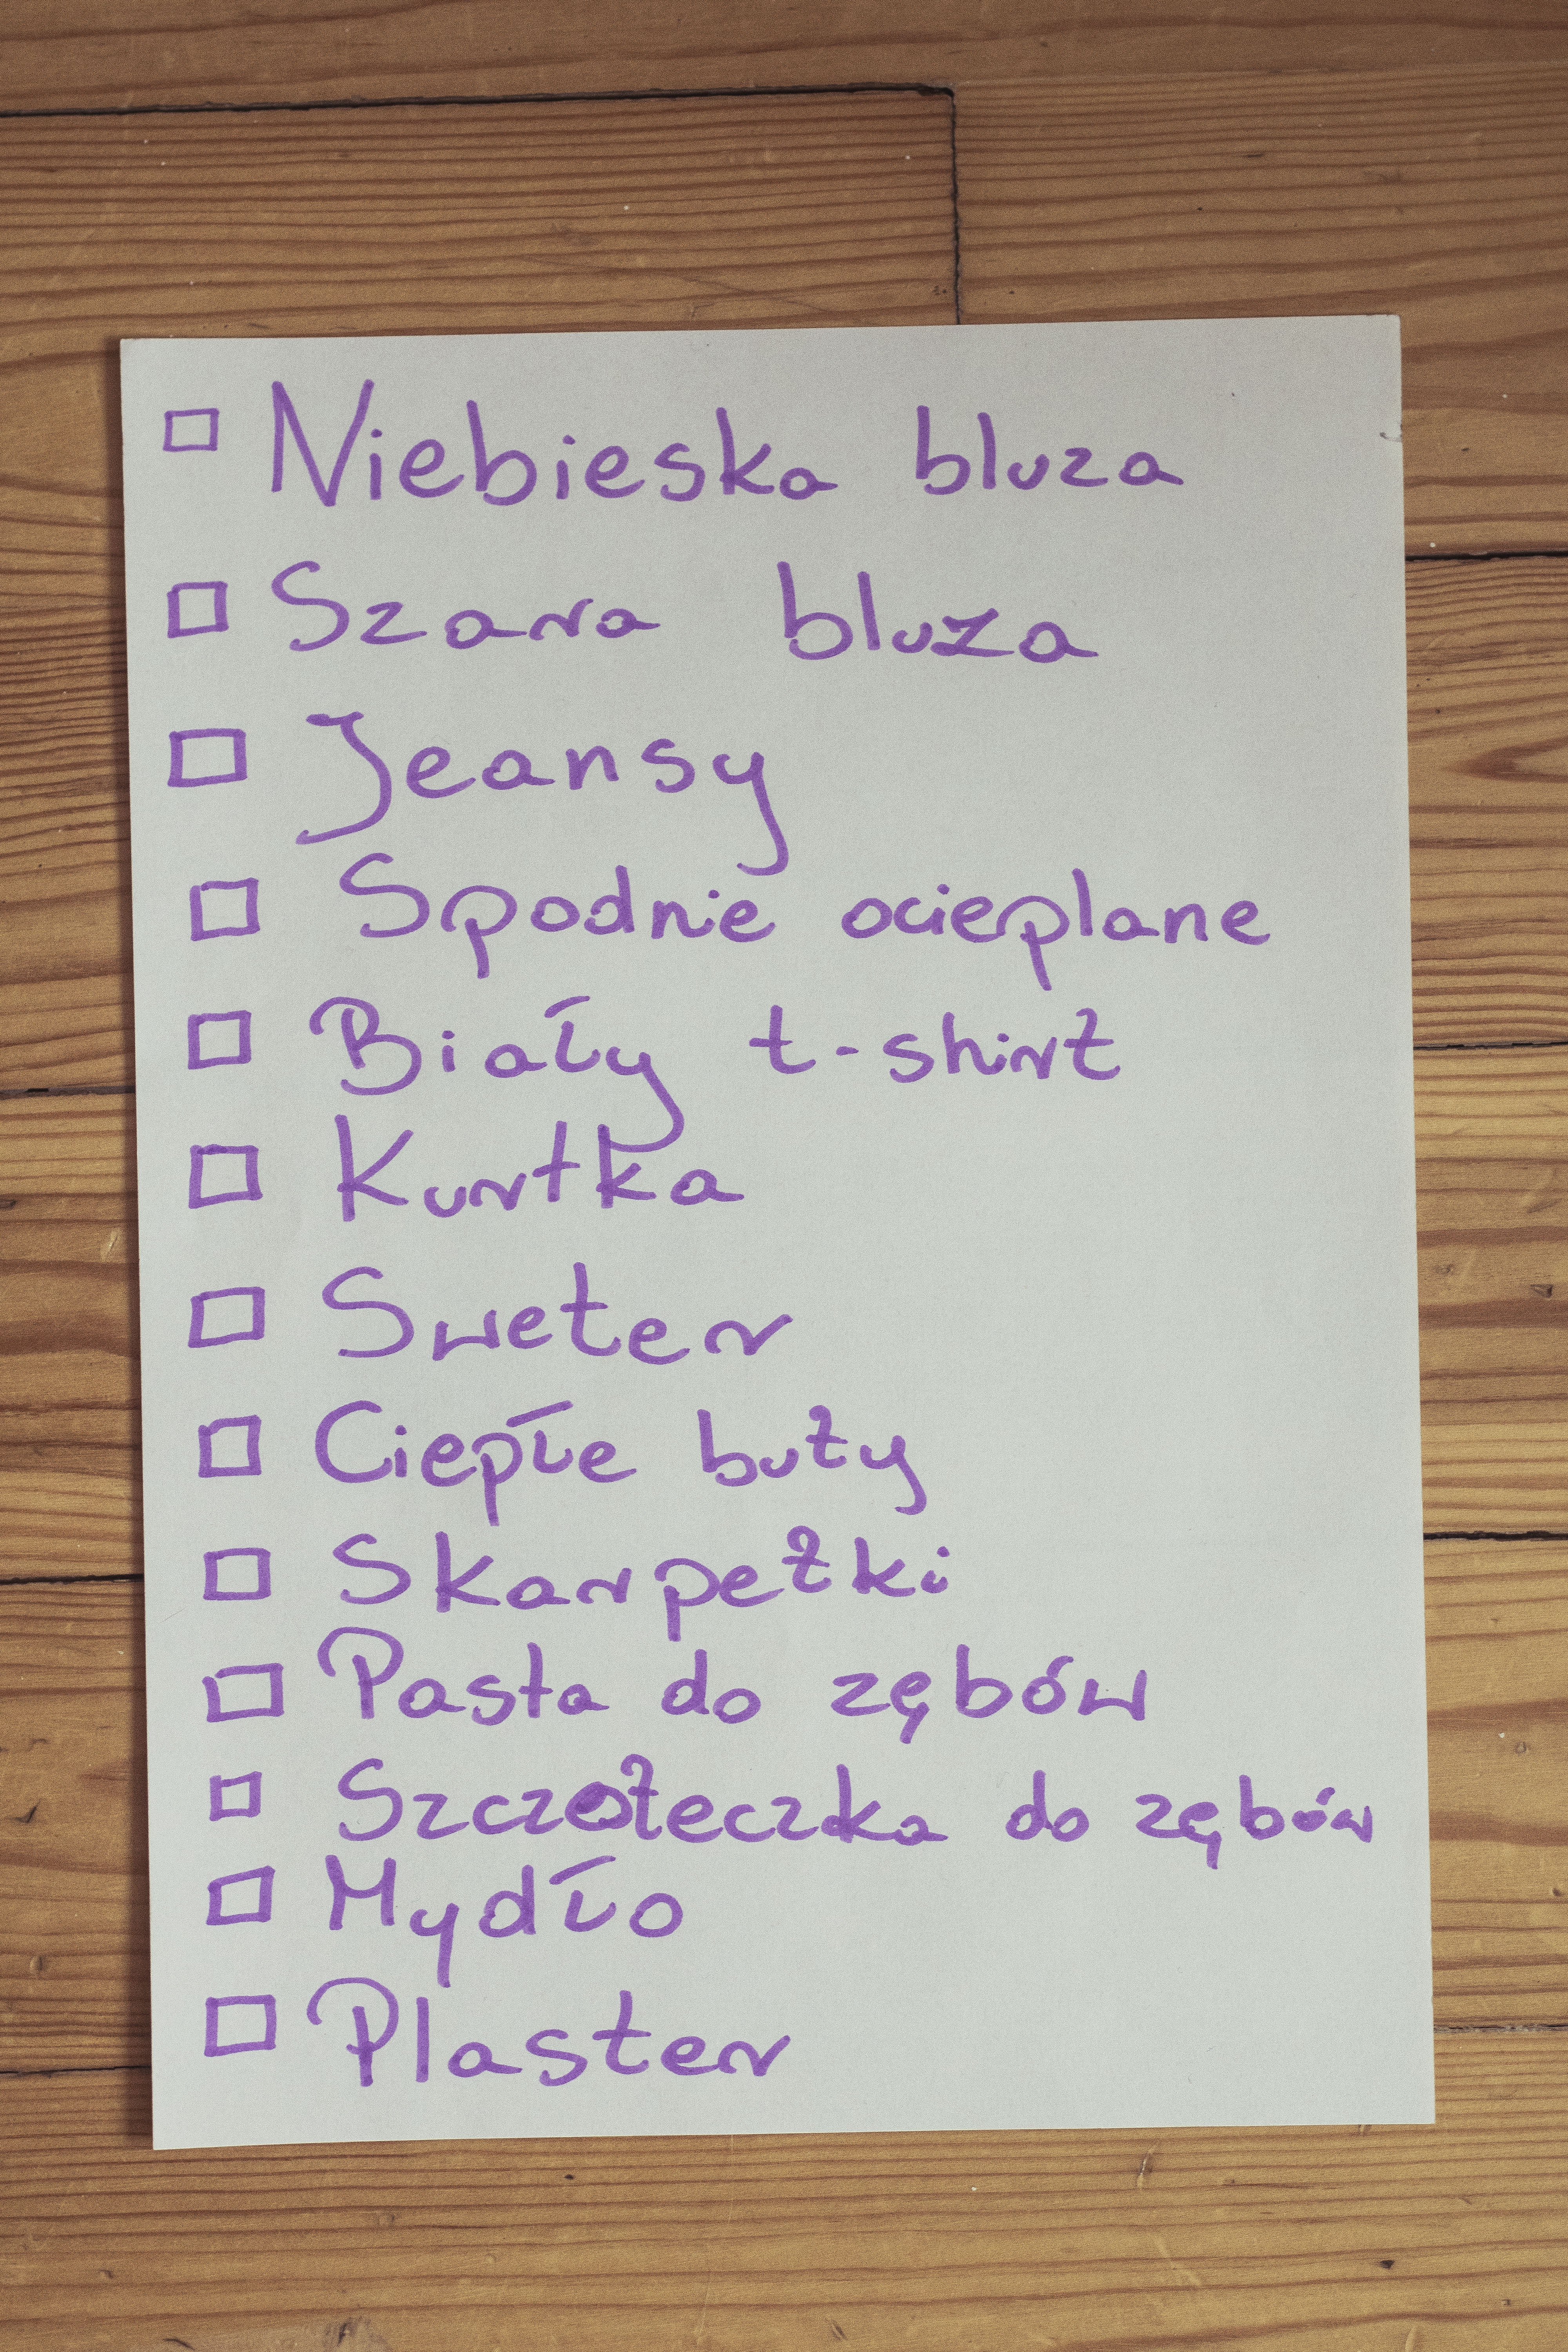 Niebieska bluza
Szara bluza
Jeansy
Spodnie ocieplane
Biały t-shirt
Kurtka
Sweter
Ciepłe buty
Skarpetki
Pasta do zębów
Szczoteczka do zębów
Mydło
Plaster